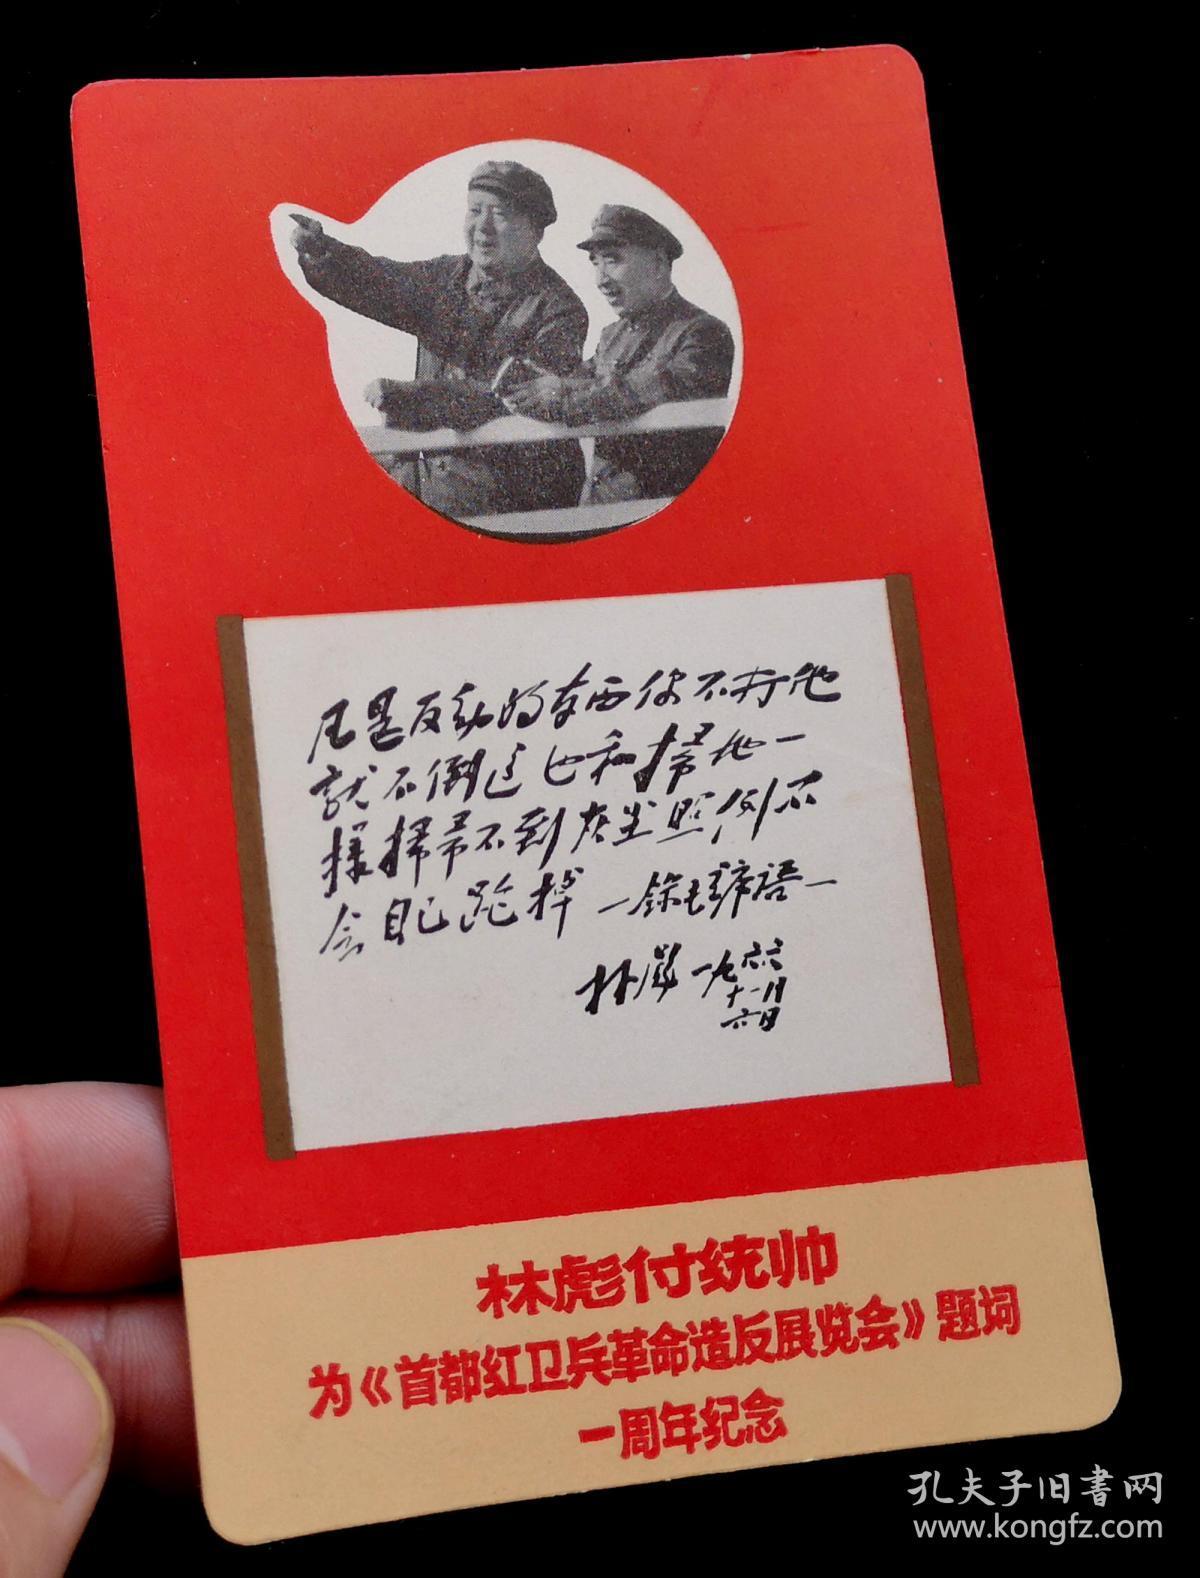 凡是反动的东西你不打他
就不倒这也和掃地一
样掃帚不到灰尘照例不
会自己跑掉 —錄毛主席語—
林彪 一九六六
十一月
六日
林彪付统帅
为《首都红卫兵革命造反展览会》题词
一周年纪念
孔夫子旧書网
www.kongfz.com